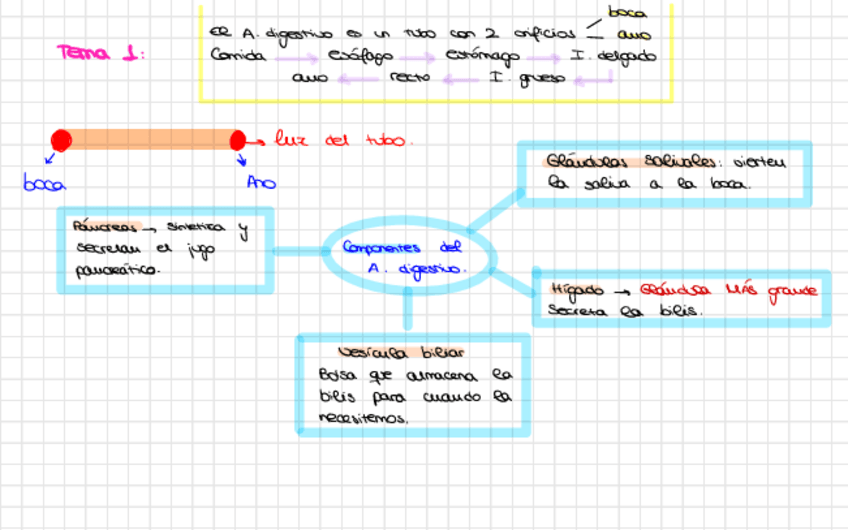 boca
El A. digestivo es un tubo con 2 orificios
ano
Tema 1:
Comida → esófago → estómago → I. delgado
ano ← recto ← I. grueso ←
→ luz del tubo.
boca
Ano
Glándulas salivales: vierten
la saliva a la boca.
Páncreas → sintetiza y
secretan el jugo
pancreático.
Componentes del
A. digestivo.
Hígado → Glándula MÁS grande
Secreta la bilis.
Vesícula biliar
Bolsa que almacena la
bilis para cuando la
necesitemos.